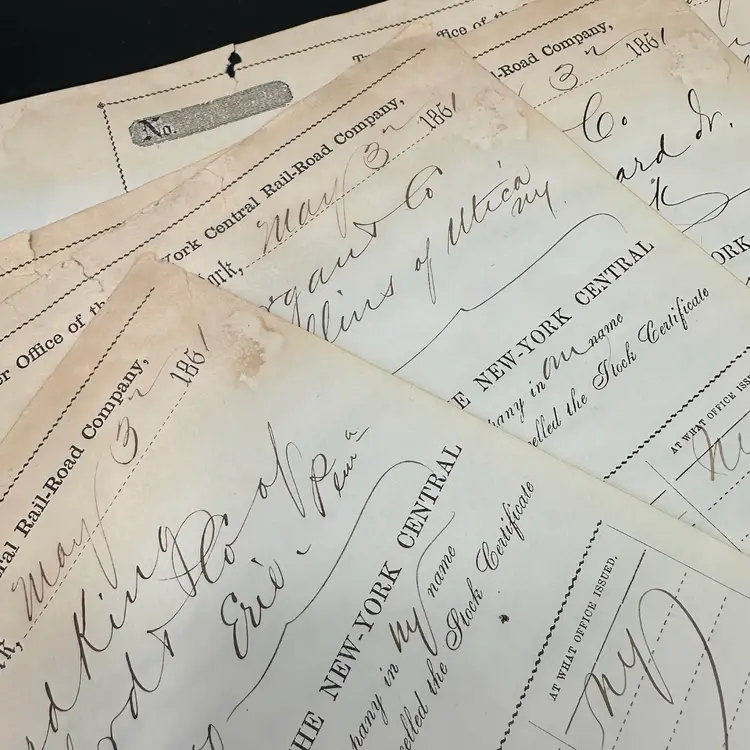 ffice of th
No.
-Road Company,
3 1861
Co.
ard Jr.
ORK
York Central Rail-Road Company,
ork, May 3 1861
organ & Co
llins of Utica
NY.
E NEW-YORK CENTRAL
pany in our name
celled the Stock Certificate
AT WHAT OFFICE ISSU
r Office of th
ral Rail-Road Company,
rk, May 3 1861
d King of
& Co
Erie Penna
HE NEW-YORK CENTRAL
pany in my name
celled the Stock Certificate
AT WHAT OFFICE ISSUED.
NY